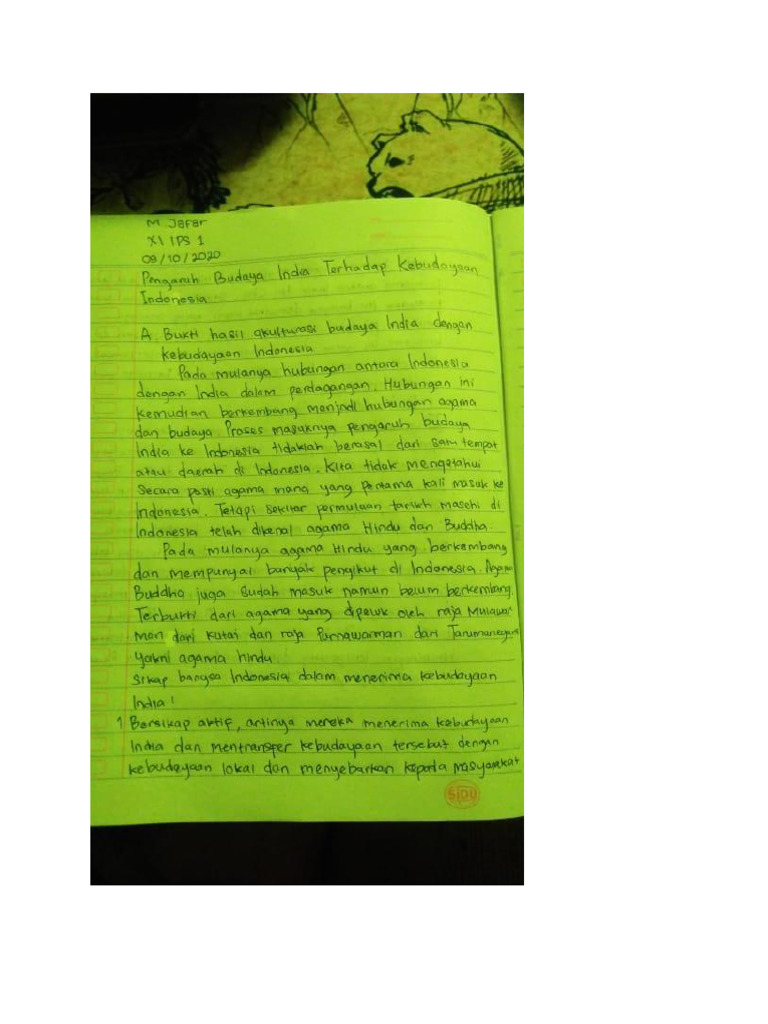 M. Jafar
XI IPS 1
08/10/2020
Pengaruh Budaya India Terhadap Kebudayaan
Indonesia
A. Bukti hasil akulturasi budaya India dengan
kebudayaan Indonesia
Pada mulanya hubungan antara Indonesia
dengan India dalam perdagangan. Hubungan ini
kemudian berkembang menjadi hubungan agama
dan budaya. Proses masuknya pengaruh budaya
India ke Indonesia tidaklah berasal dari satu tempat
atau daerah di Indonesia. Kita tidak mengetahui
secara pasti agama mana yang pertama kali masuk ke
Indonesia. Tetapi sekitar permulaan tarikh masehi di
Indonesia telah dikenal agama Hindu dan Buddha.
Pada mulanya agama Hindu yang berkembang
dan mempunyai banyak pengikut di Indonesia. Agama
Buddha juga sudah masuk namun belum berkembang.
Terbukti dari agama yang dipeluk oleh raja Mulawar
man dari Kutai dan raja Purnawarman dari Tarumanegara
yakni agama hindu.
Sikap bangsa Indonesia dalam menerima kebudayaan
India:
1 Bersikap aktif, artinya mereka menerima kebudayaan
India dan mentransfer kebudayaan tersebut dengan
kebudayaan lokal dan menyebarkan kepada masyarakat
SIDU